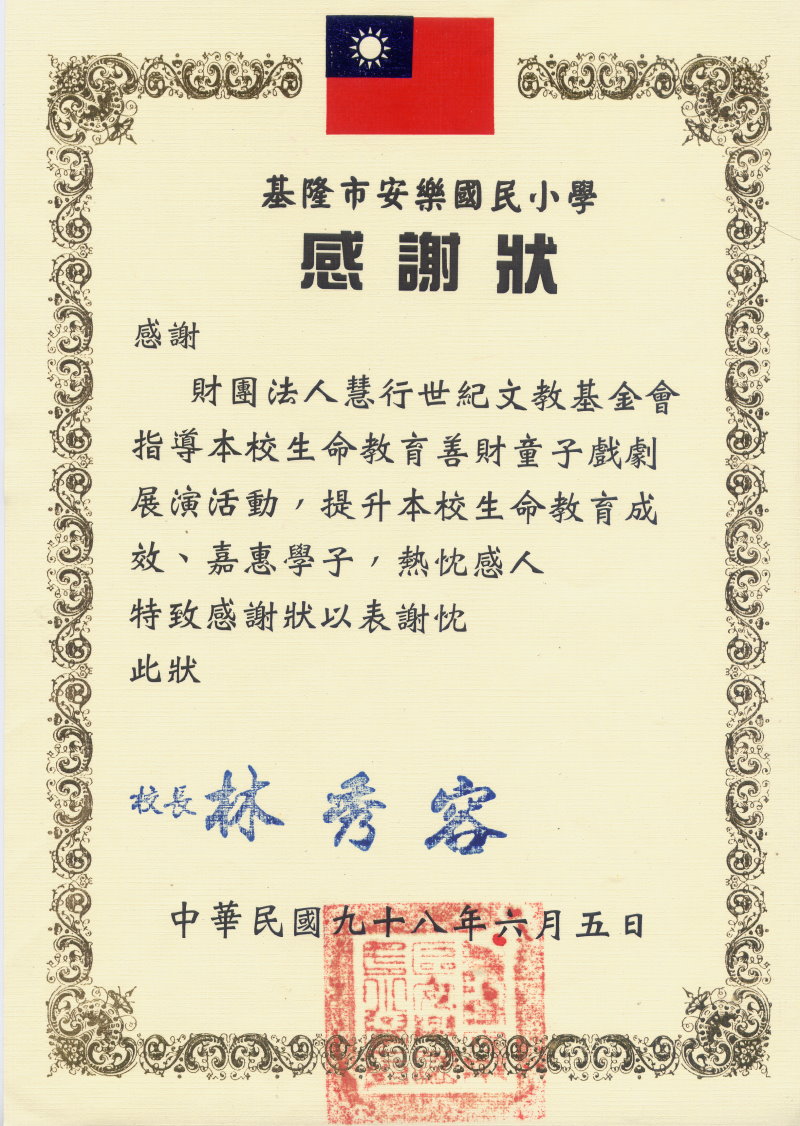 基隆市安樂國民小學
感謝狀
感謝
財團法人慧行世紀文教基金會
指導本校生命教育善財童子戲劇
展演活動，提升本校生命教育成
效、嘉惠學子，熱忱感人
特致感謝狀以表謝忱
此狀
校長 林秀容
中華民國九十八年六月五日